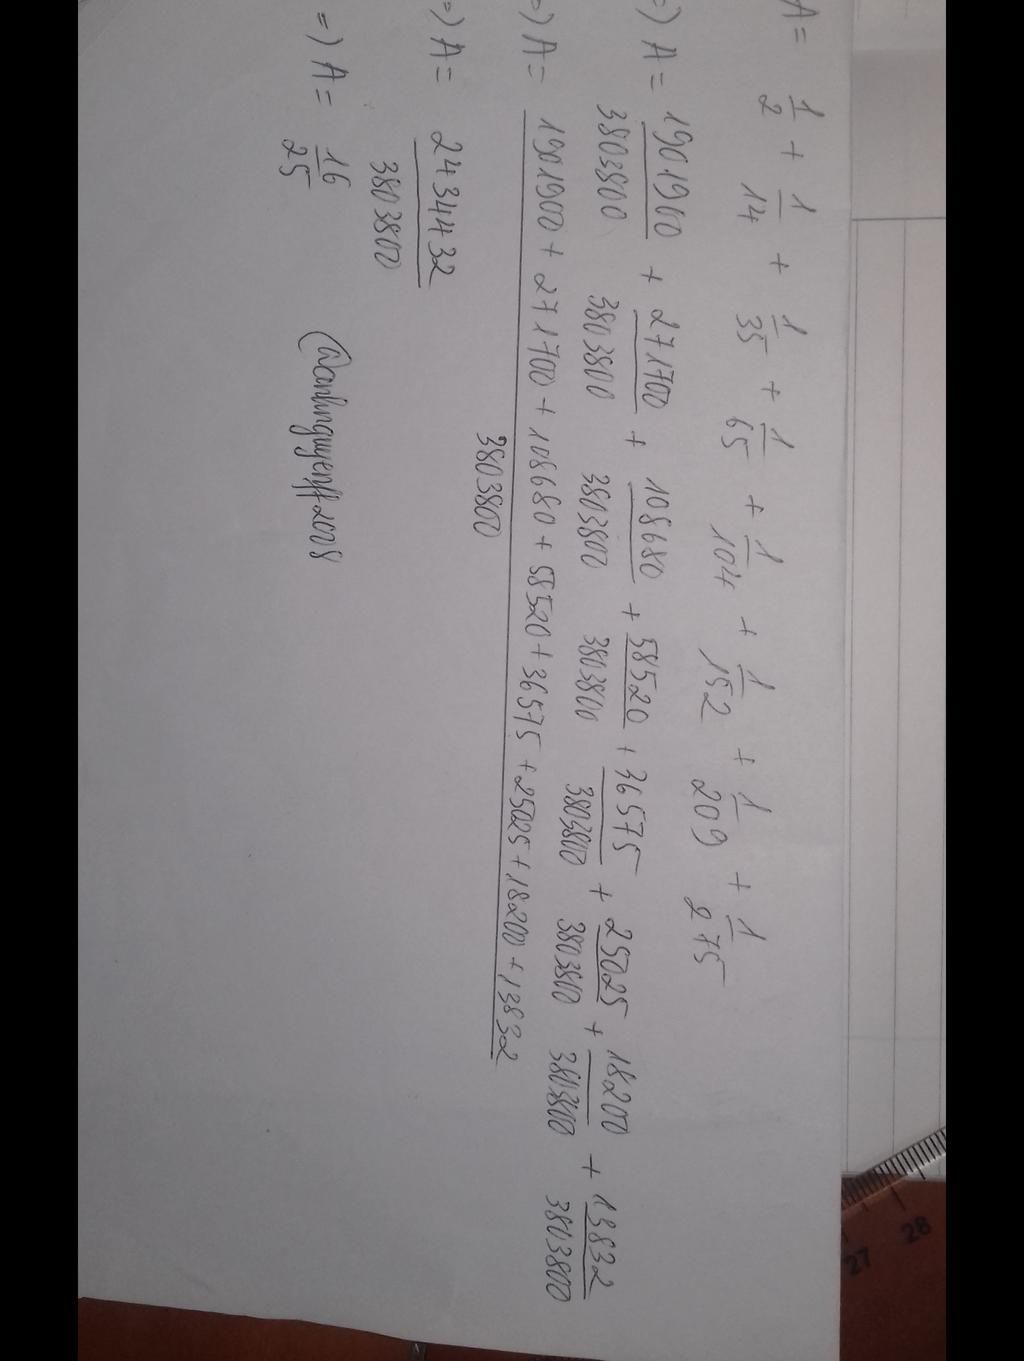 A = 1/2 + 1/14 + 1/35 + 1/65 + 1/104 + 1/152 + 1/209 + 1/275
=) A = 1901900/3803800 + 271700/3803800 + 108680/3803800 + 58520/3803800 + 36575/3803800 + 25025/3803800 + 18200/3803800 + 13832/3803800
=) A = 1901900 + 271700 + 108680 + 58520 + 36575 + 25025 + 18200 + 13832 / 3803800
=) A = 2434432/3803800
=) A = 16/25
28
27